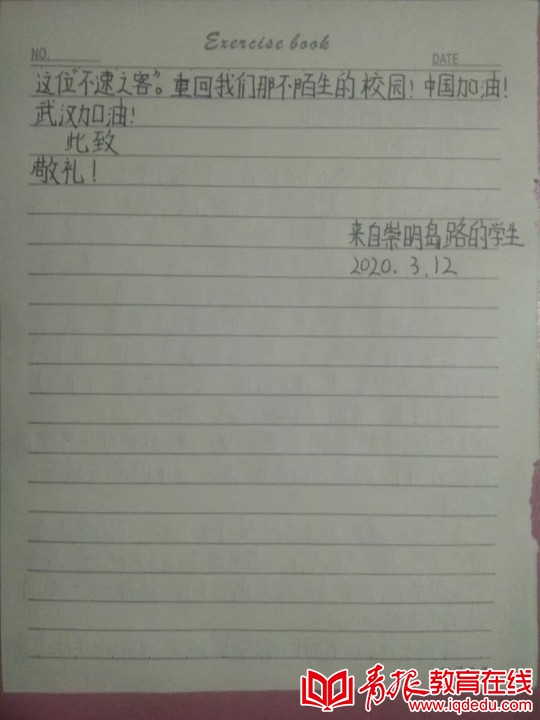 Exercise book
NO.
DATE
这位“不速之客”。重回我们那不陌生的校园！中国加油！
武汉加油！
此致
敬礼！
来自崇明岛路的学生
2020.3.12
青报教育在线
www.iqdedu.com